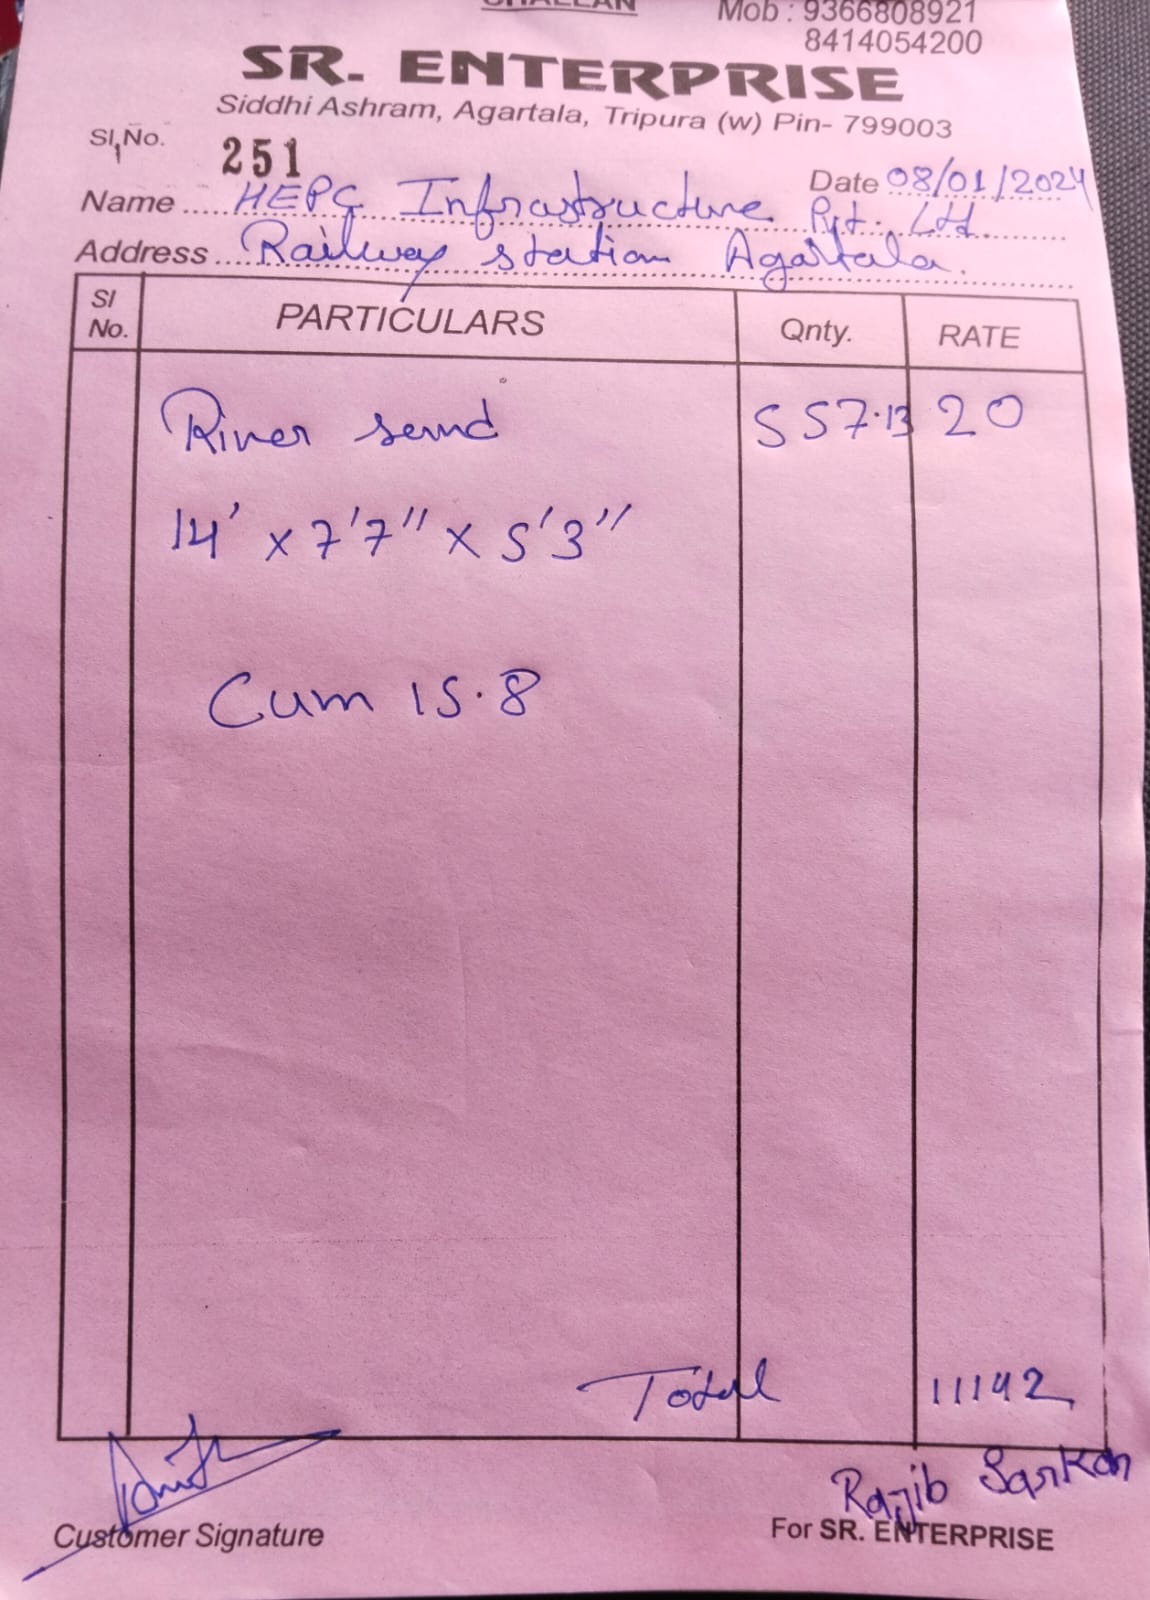 CHALLAN
Mob : 9366808921
8414054200
SR. ENTERPRISE
Siddhi Ashram, Agartala, Tripura (w) Pin- 799003
Sl,No. 251
Date 08/01/2024
Name HEPC Infrastructure Pvt. Ltd.
Address Railway station Agartala.
Sl No. PARTICULARS Qnty. RATE
River send 557.13 20
14' x 7'7" x 5'3"
Cum 15.8
Total 11142
Rajib Sarkar
Customer Signature For SR. ENTERPRISE